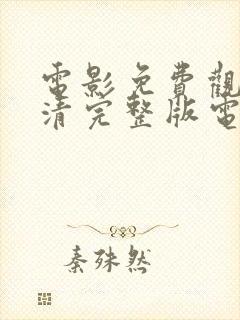 電影免費觀
清完整版電
秦殊然